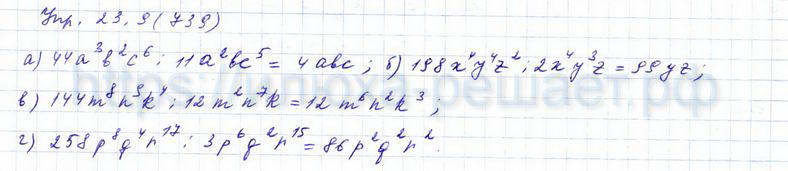 Упр. 23.9 (739)
а) 44a³b²c⁶ : 11a²bc⁵ = 4abc; б) 198x⁴y⁴z² : 2x⁴y³z = 99yz;
в) 144m⁸n⁹k⁴ : 12m²n⁷k = 12m⁶n²k³;
г) 258p⁸q⁴r¹⁷ : 3p⁶q²r¹⁵ = 86p²q²r².